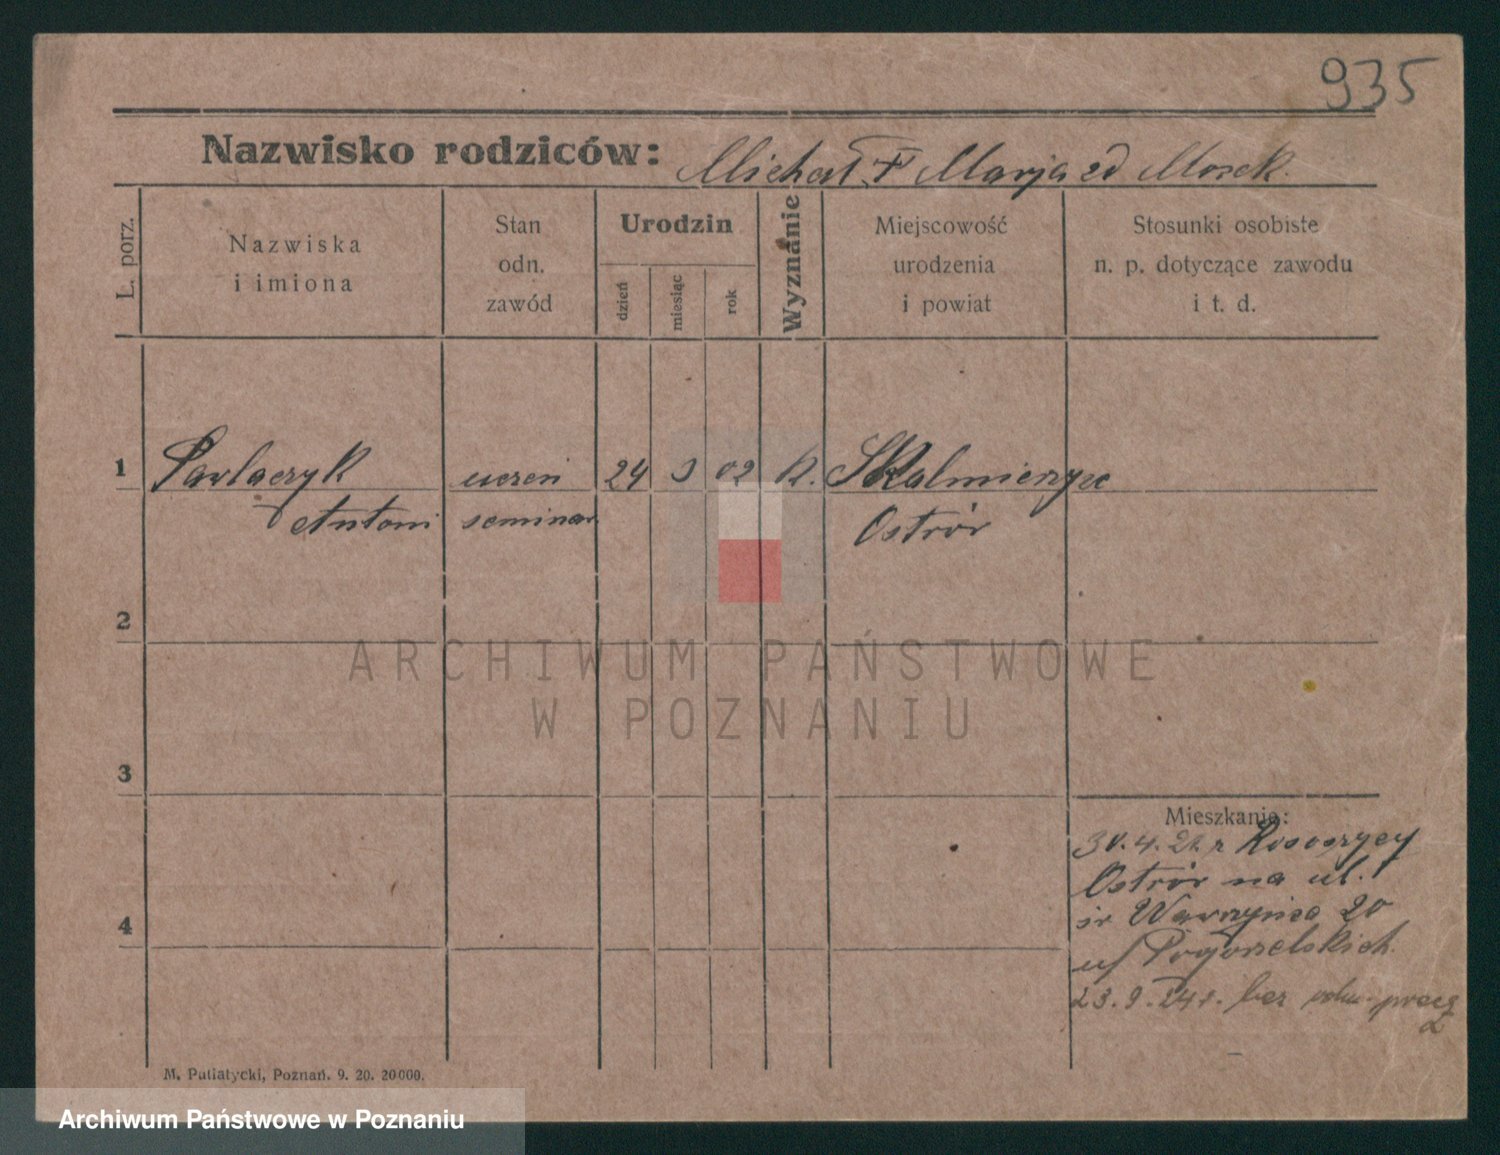 935
Nazwisko rodziców: Michał i Marja zd Mosek.
L. porz.
Nazwiska
i imiona
Stan
odn.
zawód
Urodzin
dzień
miesiąc
rok
Wyznanie
Miejscowość
urodzenia
i powiat
Stosunki osobiste
n. p. dotyczące zawodu
i t. d.
1 Pawlaczyk uczeń 24 02 k. Skalmierzyce
Antoni seminar Ostrów
2
ARCHIWUM PAŃSTWOWE
W POZNANIU
3
Mieszkanie:
30.4.21. z
Ostrów na ul.
św Wawrzyńca 20
u/ Pogorzelskich.
23.9.24r. bez
4
M. Putiatycki, Poznań. 9. 20. 20000.
Archiwum Państwowe w Poznaniu